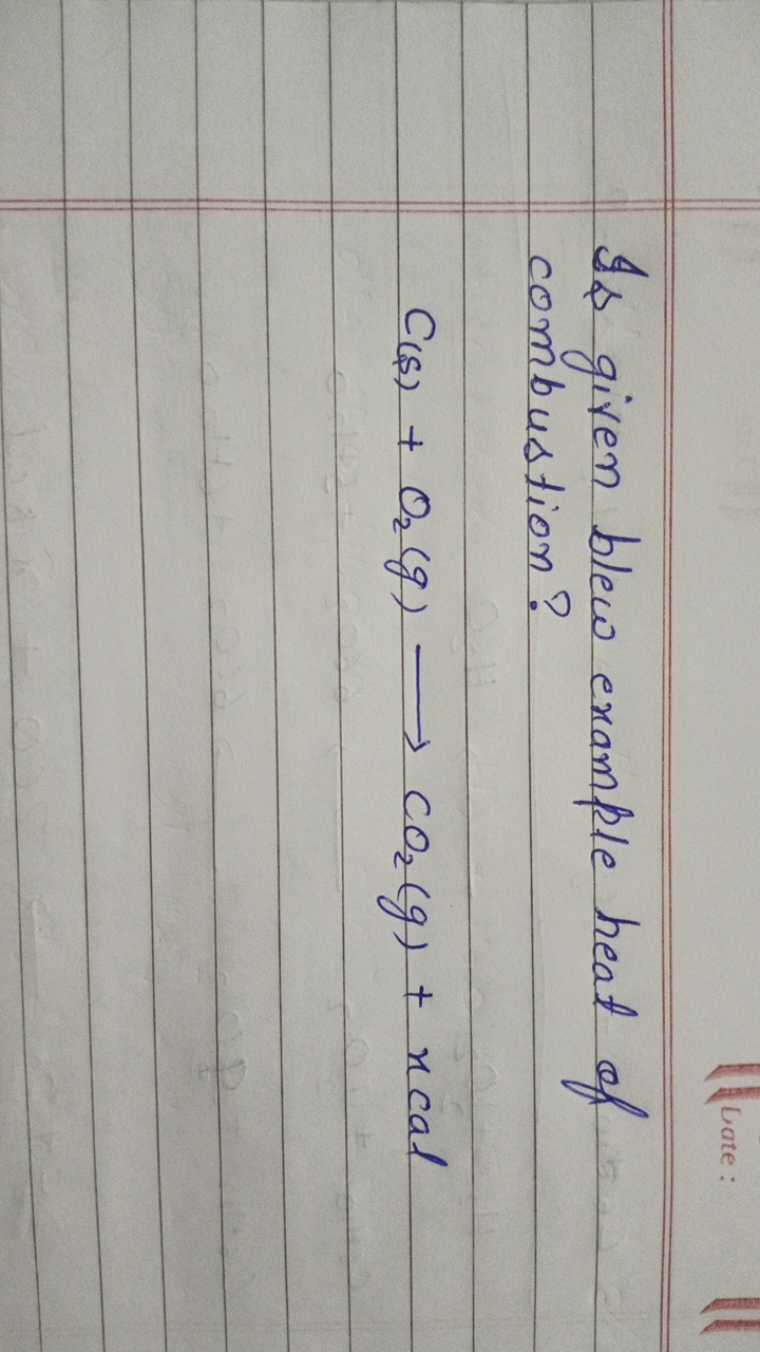 Date :
Is given blew example heat of
combustion?
C(s) + O₂(g) ⟶ CO₂(g) + x cal